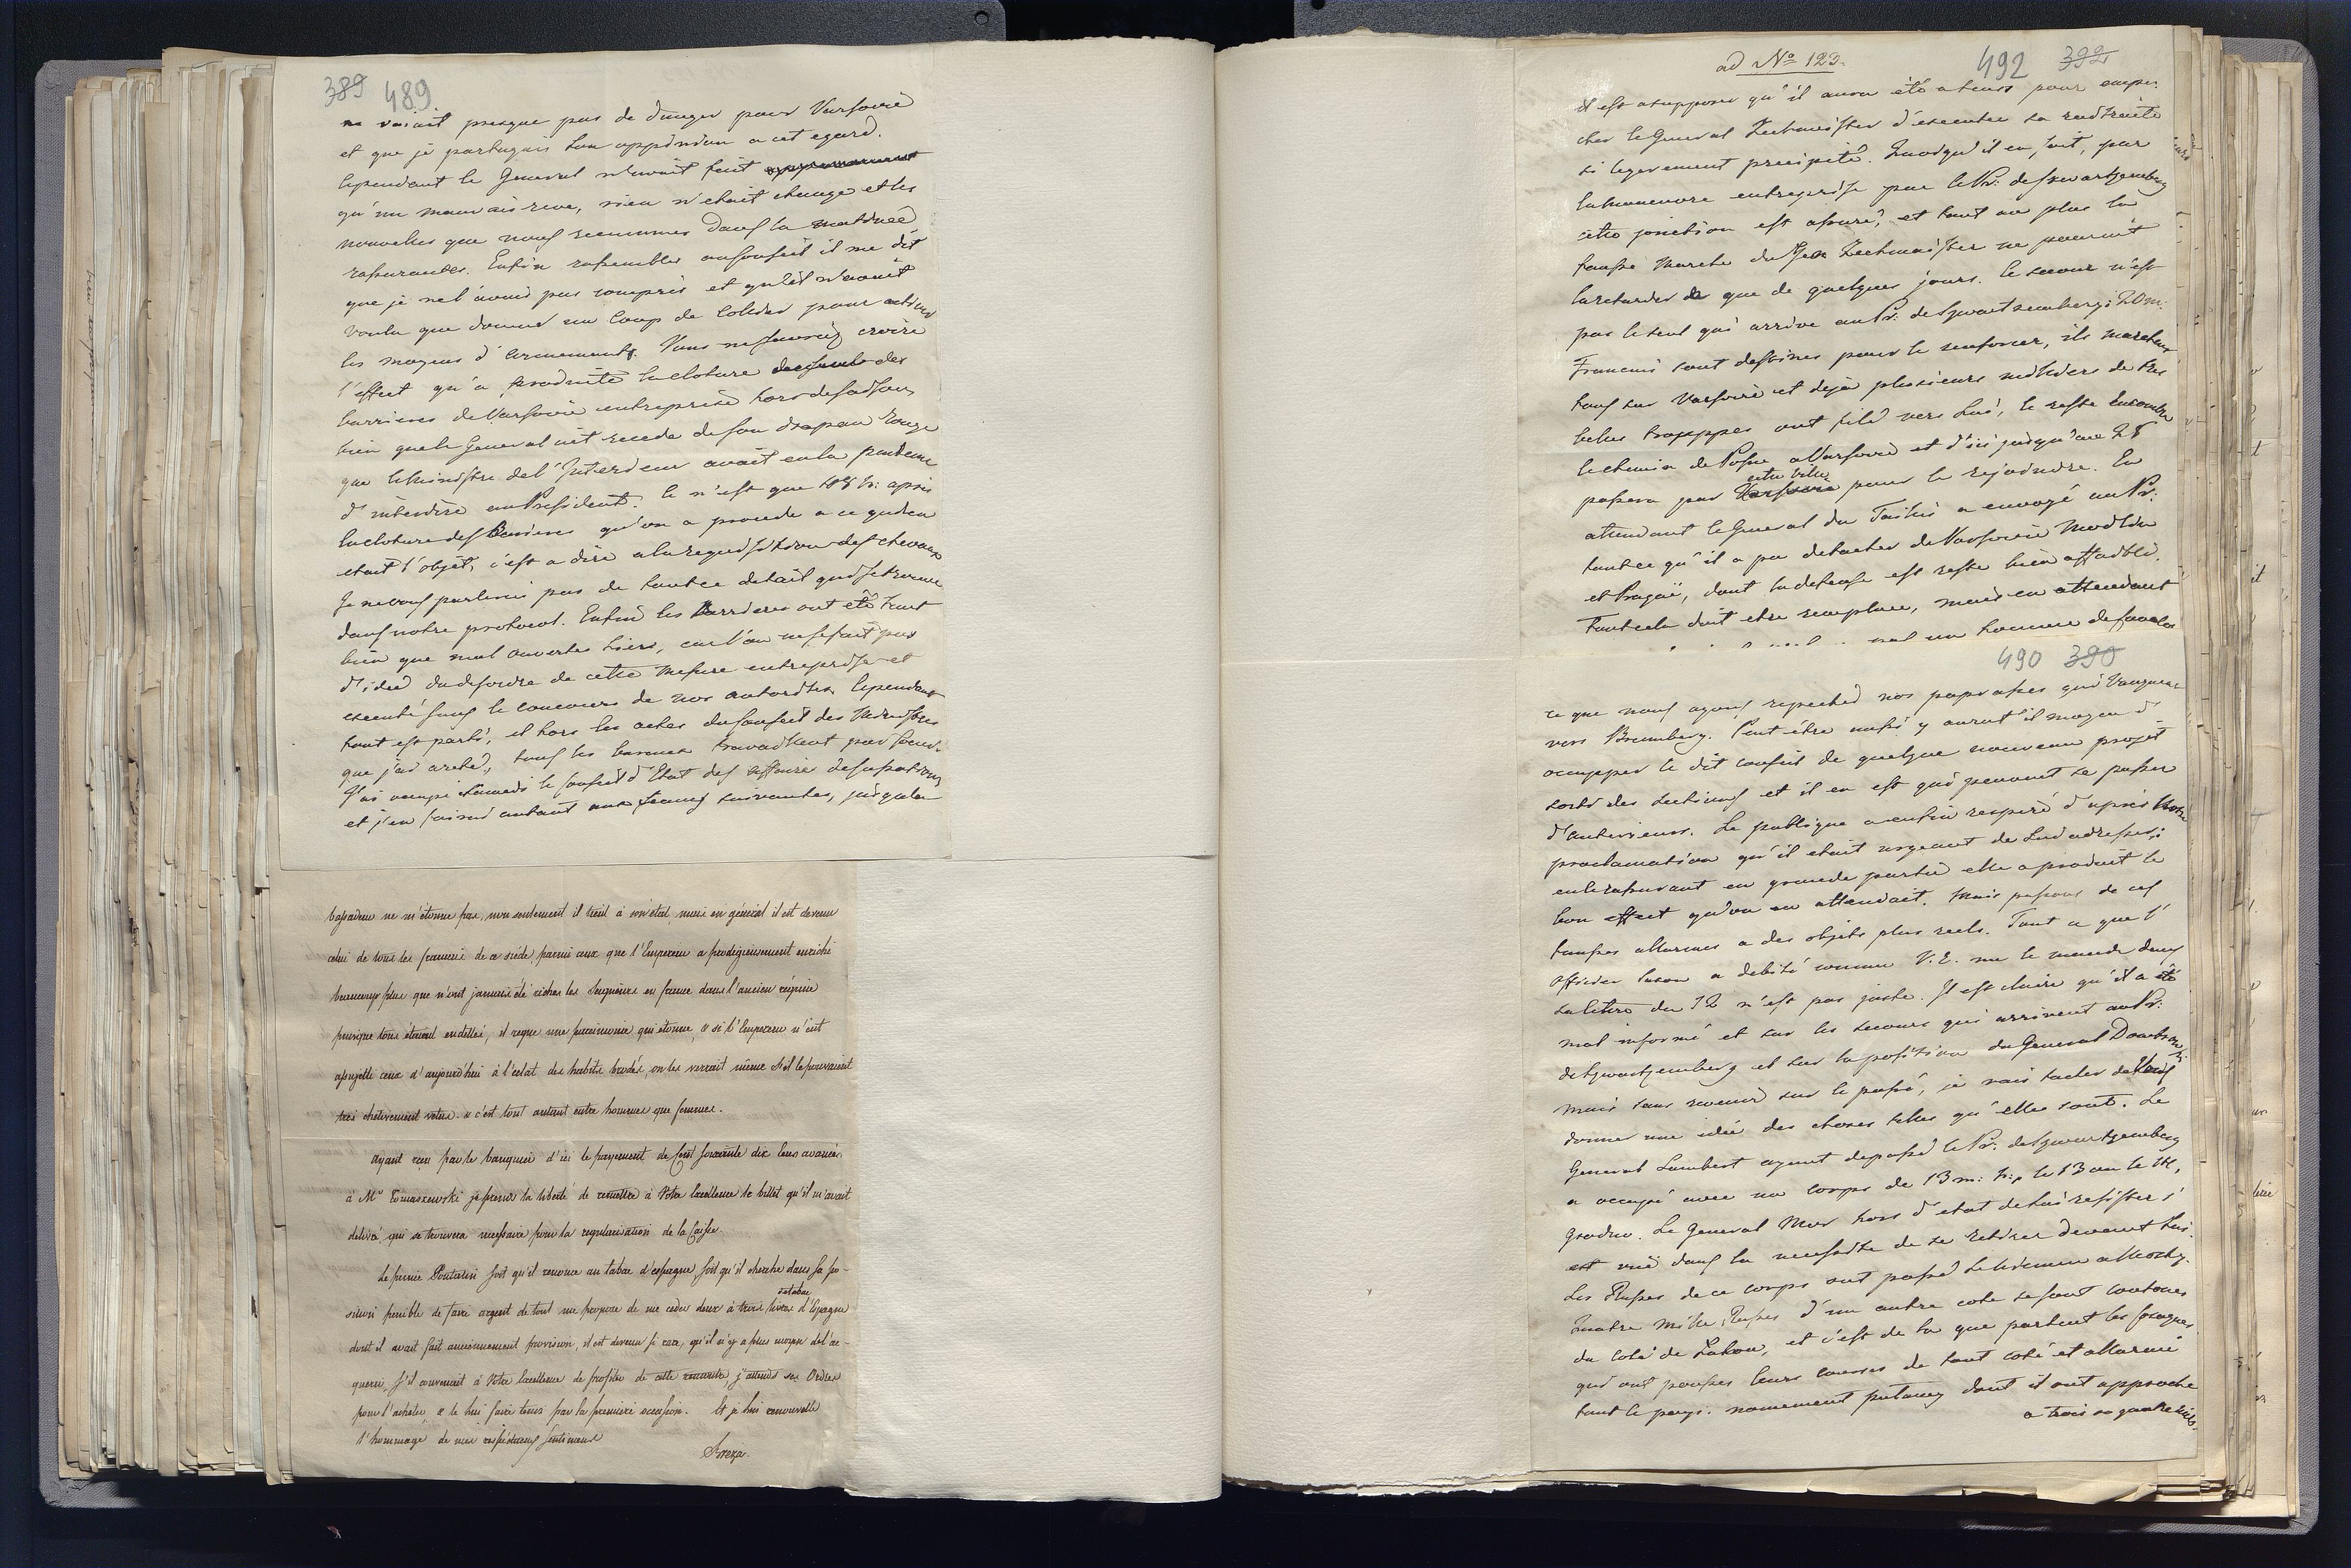 389 489
ne voiait presque pas de danger pour Varsovie
et que je partageais son oppinion a cet egard.
Cependant le General n'avoit fait
qu'un mauvais reve, rien n'etait change et les
nouvelles que nous recumes dans la matinee
rassurantes. Enfin rassembles au conseil il me dit
que je ne l'avais pas compris et qu'il n'avoit
voulu que donner un coup de collier pour activer
les moyens d'armements. Vous ne sauriez croire
l'effect qu'a produite la cloture des
barrieres de Varsovie entreprise hors de saison
bien que le General ait recede de son drapeau rouge
que le Ministre de l'Interieur avait eu la prudence
d'interdire au President. Ce n'est que 48 h: apres
la cloture des Barrieres qu'on a procede a ce qui en
etait l'objet, c'est a dire a la requisition des chevaux
Je ne vous parlerai pas de tout ce detail qui se trouve
dans notre protocol. Enfin les Barrieres ont eté tout
bien que mal ouvertes hiers, car l'on ne se fait pas
d'idee du desordre de cette mesure entreprise et
executé sans le concours de nos autorites. Cependant
tout est parti, et hors les actes du conseil des Ministres
que j'ai areté, tous les bureaux travaillent
J'ai occupé Samedi le conseil d'Etat des affaires de cassations
et j'en faisais autant aux seances suivantes, jusqu'a
bassadeur ne m'étonne pas, non seulement il tient à son état, mais en général il est devenu
celui de tous les francais de ce siécle, parmi ceux que l'Empereur a prodigieusement enrichi
beaucoup plus que n'ont jamais été riches les Seigneurs en france dans l'ancien régime
puisque tous étaient endettés, il regne une parcimonie qui étonne, & si l'Empereur n'eut
assujetti ceux d'aujourd'hui à l'éclat des habits brodés, on les verrait même s'il le pouvaient
très chetivement vetus. & c'est tout autant entre hommes que femmes.
Ayant reçu par le banquier d'ici le payement de Cent soixante dix livres avancés
à Mr Tomaszewski je prens la liberté de remettre à Votre Excellence le billet qu'il m'avait
délivré, qui se trouvera necessaire pour la regularisation de la Caisse.
Le prince Poniatow soit qu'il renonce au tabac d'espagne, soit qu'il cherche dans sa po-
sition penible de faire argent de tout me propose de me ceder deux à trois livres d'Espagne
dont il avait fait anciennement provision, il est devenu si rare, qu'il n'y a plus moyen del'ac-
querir, s'il convenait à Votre Excellence de profiter de cette rencontre, j'attends ses Ordres
pour l'acheter, & le lui faire tenir par la premiere occasion. Et je lui renouvelle
l'hommage de mes respectueux sentimens
Breza.
ad No 123.
492 392
Il est a supposer qu'il aura été a tems pour empe-
cher le General Zechmeister d'executer sa
si legerement precipité. Quoiqu'il en soit, par
la manoeuvre entreprise par le Pr: de Swartzemberg
cette jonction est assuré, et tout au plus la
fausse Marche du Gen Zechmeister ne pourrait
la retarder que de quelques jours. Ce secour n'est
pas le seul qui arrive au Pr: de Szwartzemberg: 20 m:
Francais sont destines pour le renforcer, ils marchent
tous sur Varsovie et dejà plusieurs milliers de tres
belles trouppes ont filé vers Lui, le reste
le chemin de Posne a Varsovie et d'ici jusqu'au 28
cette ville
passera par Varsovie pour le rejoindre. En
attendant le General du Taillis a envoyé au Pr:
tout ce qu'il a pu detacher de Varsovie Modlin
et Pragai, dont la defense est reste bien affaibli.
Tout cela doit etre remplace, mais en attendant
490 390
ce que nous ayons repeché nos paperasses
vers Bromberg. Peut être aussi y aurait il moyen d'
occupper le dit conseil de quelque nouveau projet
sorti des sections et il en est qui peuvent se passer
d'anterieurs. Le publique a enfin respiré d'après Votre
proclamation qu'il etait urgeant de Lui adresser:
en le rassurant en grande partie elle a produit le
bon effect qu'on en attendait. Mais passons de ces
fausses allarmes a des objets plus reels. Tout ce que l'
Officier Saxon a debité comme V. E. me le mande dans
sa lettre du 12 n'est pas juste. Il est claire qu'il a été
mal informé et sur les secours qui arrivent au Pr:
de Szwartzemberg et sur la position du General Dombrowski
mais sans revenir sur le passé, je vais tacher de Vous
donner une idée des choses telles qu'elles sont. Le
General Lambert ayant depassé le Pr: de Szwartzemberg
a occupé avec un corps de 13 m: h:, le 13 ou le 14,
Grodno. Le General Mor hors d'etat de lui resister s'
est vuë dans la necessite de se retirer devant Lui.
Les Russes de ce corps ont passé le Niemen a Mosty.
Quatre mille Russes d'un autre cote se sont
du coté de, et c'est de la que partent les
qui ont pousses leurs courses de tout coté et allarmé
tout le pays. nomement pulawy dont il ont approche
a trois ou quatre